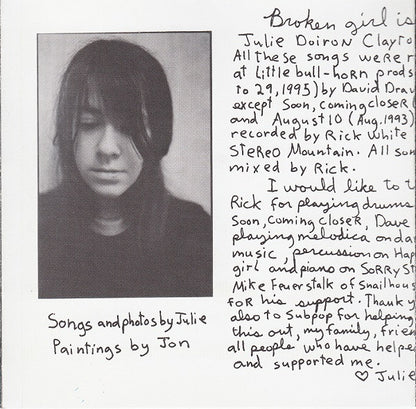 Broken girl is
Julie Doiron Clayto
All these songs were r
at Little bull-horn prods
to 29, 1995) by David Drav
except Soon, coming closer,
and August 10 (Aug. 1993)
recorded by Rick White
Stereo Mountain. All son
mixed by Rick.
I would like to t
Rick for playing drums
Soon, Coming Closer, Dave
playing melodica on da
music, percussion on Hap
girl and piano on Sorry St
Mike Feuerstalk of Snailhous
for his support. Thank y
also to Subpop for helping
this out, my family, frien
all people who have helpe
and supported me.
♡ Julie
Songs and photos by Julie
Paintings by Jon